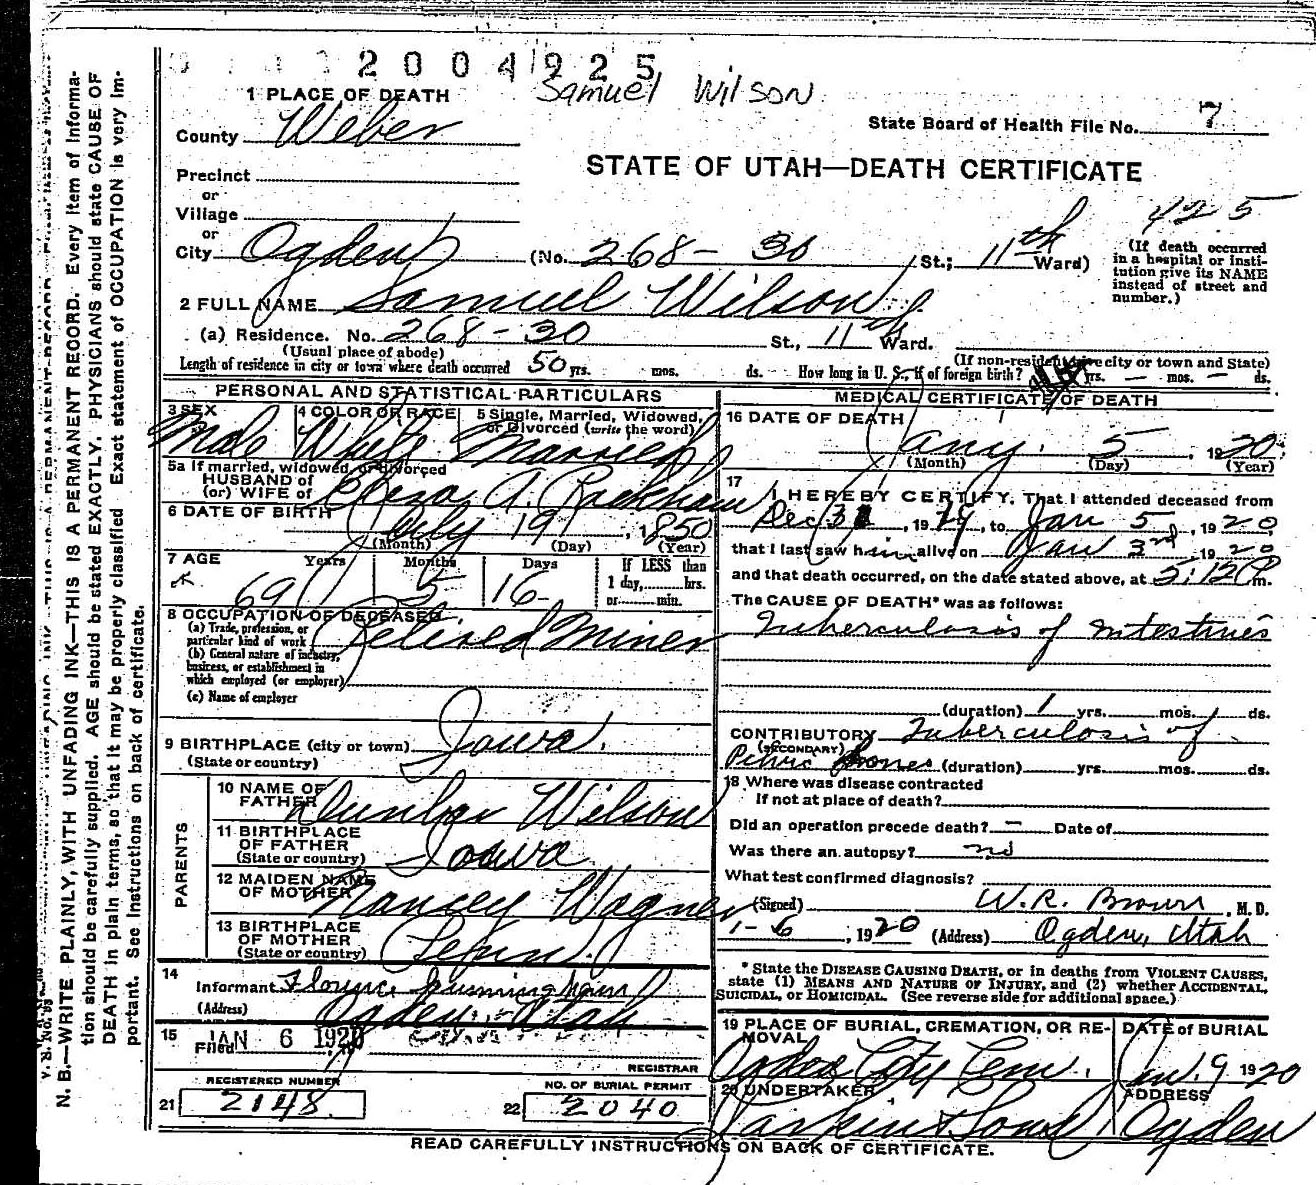 2004925
Samuel Wilson
1 PLACE OF DEATH
County Weber
State Board of Health File No. 7
STATE OF UTAH—DEATH CERTIFICATE
Precinct
or
Village
or
425
City Ogden (No. 268-30 St.; 11th Ward)
(If death occurred in a hospital or institution give its NAME instead of street and number.)
2 FULL NAME Samuel Wilson
(a) Residence. No. 268-30 St., 11th Ward.
(Usual place of abode)
(If non-resident give city or town and State)
Length of residence in city or town where death occurred 50 yrs. mos. ds. How long in U. S., if of foreign birth? yrs. — mos. — ds.
PERSONAL AND STATISTICAL PARTICULARS
3 SEX
Male
4 COLOR OR RACE
White
5 Single, Married, Widowed, or Divorced (write the word)
Married
5a If married, widowed, or divorced
HUSBAND of
(or) WIFE of Eliza A. Rackham
6 DATE OF BIRTH
July 19, 1850
(Month) (Day) (Year)
7 AGE Years Months Days If LESS than
1 day, hrs.
or min.
69 5 16
8 OCCUPATION OF DECEASED
(a) Trade, profession, or
particular kind of work Retired Miner
(b) General nature of industry,
business, or establishment in
which employed (or employer)
(c) Name of employer
9 BIRTHPLACE (city or town) Iowa.
(State or country)
PARENTS
10 NAME OF
FATHER Dunbar Wilson
11 BIRTHPLACE
OF FATHER
(State or country) Iowa
12 MAIDEN NAME
OF MOTHER Nancey Wagner
13 BIRTHPLACE
OF MOTHER
(State or country) Tenn.
14
Informant Florence
(Address) Ogden, Utah
15
Filed JAN 6 1920
REGISTRAR
REGISTERED NUMBER
21 2148
NO. OF BURIAL PERMIT
22 2040
MEDICAL CERTIFICATE OF DEATH
16 DATE OF DEATH
Jany. 5, 1920
(Month) (Day) (Year)
17
I HEREBY CERTIFY, That I attended deceased from
Dec 31, 1919, to Jan 5, 1920
that I last saw him alive on Jan 3rd 1920
and that death occurred, on the date stated above, at 5:12 P m.
The CAUSE OF DEATH* was as follows:
Tuberculosis of Intestines
(duration) 1 yrs. mos. ds.
CONTRIBUTORY Tuberculosis of
(SECONDARY)
Pelvic Bones (duration) yrs. mos. ds.
18 Where was disease contracted
If not at place of death?
Did an operation precede death? — Date of
Was there an autopsy? no
What test confirmed diagnosis?
(Signed) W. R. Brown, M. D.
1-6, 1920 (Address) Ogden, Utah
* State the DISEASE CAUSING DEATH, or in deaths from VIOLENT CAUSES,
state (1) MEANS AND NATURE OF INJURY, and (2) whether ACCIDENTAL,
SUICIDAL, or HOMICIDAL. (See reverse side for additional space.)
19 PLACE OF BURIAL, CREMATION, OR REMOVAL
Ogden City Cem.
DATE of BURIAL
Jan. 9 1920
20 UNDERTAKER
Larkin & Sons
ADDRESS
Ogden
READ CAREFULLY INSTRUCTIONS ON BACK OF CERTIFICATE.
N. B.—WRITE PLAINLY, WITH UNFADING INK—THIS IS A PERMANENT RECORD. Every item of information
should be carefully supplied. AGE should be stated EXACTLY. PHYSICIANS should state CAUSE OF
DEATH in plain terms, so that it may be properly classified. Exact statement of OCCUPATION is very important.
See instructions on back of certificate.